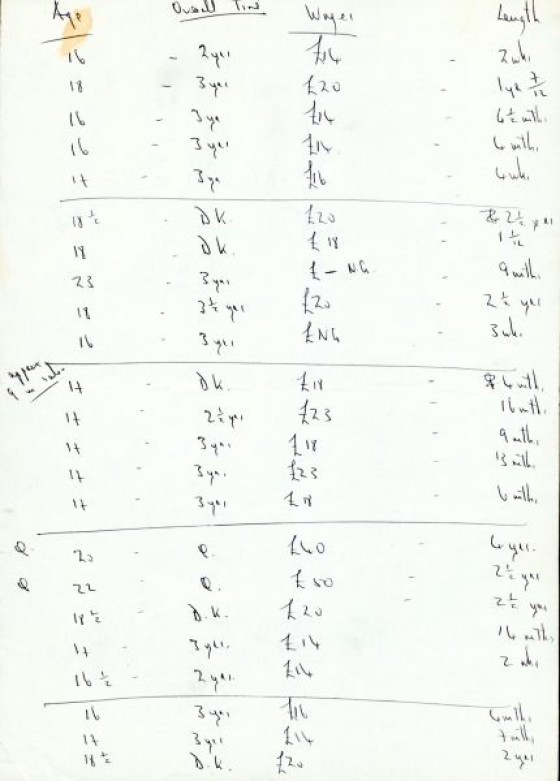 Age Overall Time Wages Length
16 - 2 yrs £14 - 2 wks.
18 - 3 yrs £20 - 1 yr 7/12
16 - 3 yrs £14 - 6 ½ mths.
16 - 3 yrs £14 - 6 mths.
17 - 3 yrs £16 - 6 wks.
18 ½ - D.K. £20 - 2 ½ yrs
18 D.K. £18 - 1 1/12
23 - 3 yrs £ - NG. 9 mths.
18 - 3 ½ yrs £20 - 2 ½ yrs
16 - 3 yrs £NG - 3 wks.
17 - D.K. £18 - 6 mths.
17 - 2 ½ yrs £23 - 16 mths.
17 - 3 yrs £18 - 9 mths.
17 - 3 yrs. £23 - 13 mths.
17 - 3 yrs £18 - 6 mths
Q. 20 - Q. £40 - 4 yrs.
Q 22 - Q. £50 - 2 ½ yrs
18 ½ - D.K. £20 - 2 ½ yrs
17 - 3 yrs. £14 16 mths
16 ½ - 2 yrs. £14 2 wks.
16 3 yrs £16 6 mths.
17 3 yrs £14 7 mths.
18 ½ D.K. £20 2 yrs